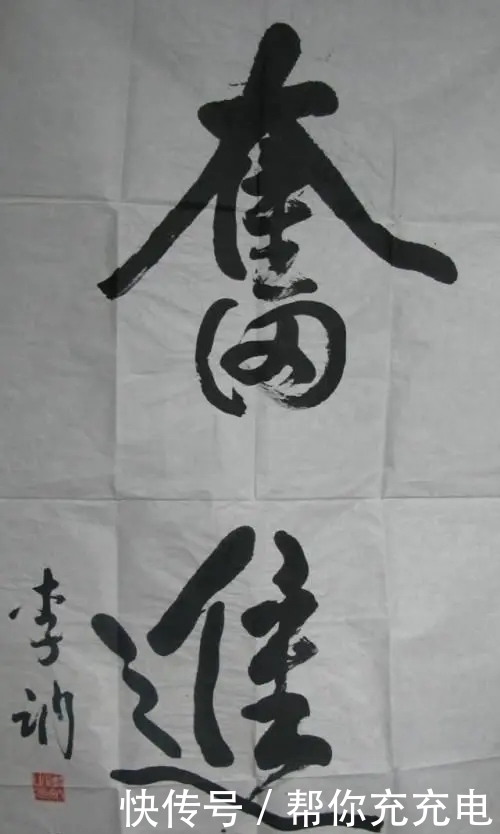 奮
進
李讷
快传号 / 帮你充充电